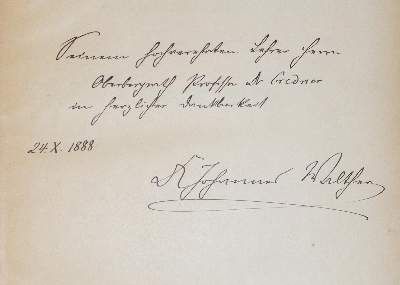 Seinem hochverehrten Lehrer Herrn
Oberbergrath Professor Dr Credner
in herzlicher Dankbarkeit
24. X. 1888
Dr Johannes Walther